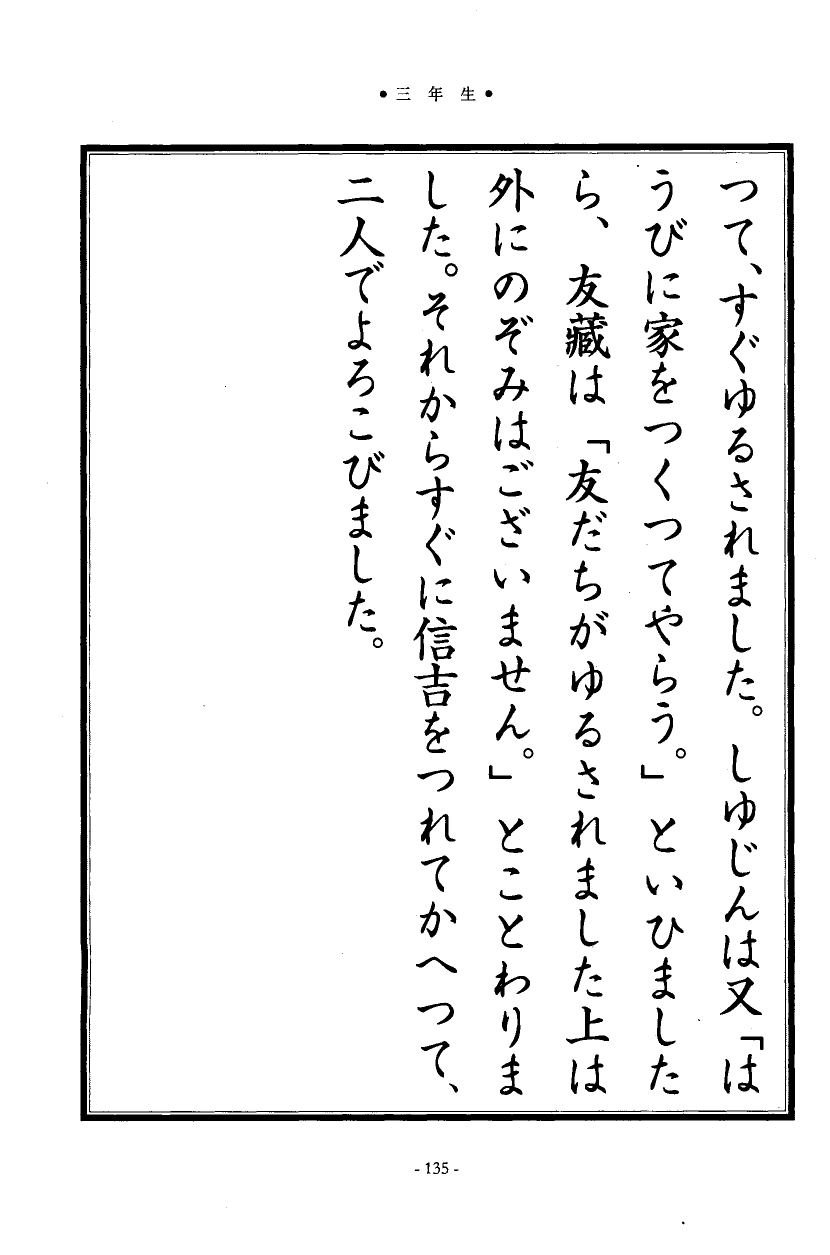 ●三年生●
つて、すぐゆるされました。しゆじんは又「は
うびに家をつくつてやらう。」といひました
ら、友藏は「友だちがゆるされました上は
外にのぞみはございません。」とことわりま
した。それからすぐに信吉をつれてかへつて、
二人でよろこびました。
- 135 -